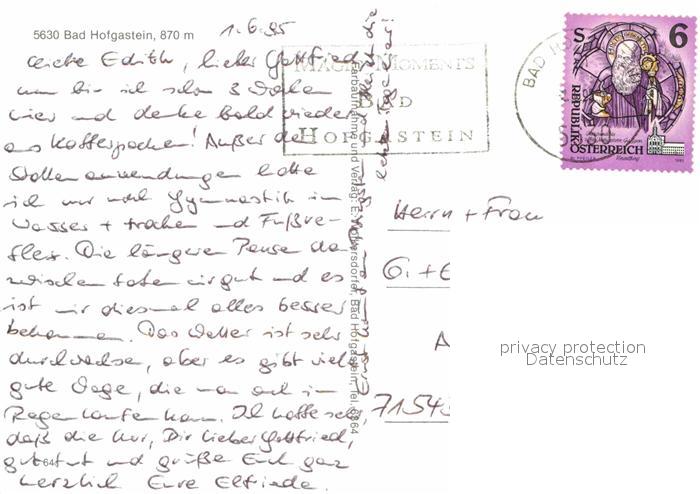 5630 Bad Hofgastein, 870 m
1.6.95
Liebe Edith, lieber Gottfried
nun bin ich schon 3 Wochen
hier und denke bald wieder
ans Kofferpacken! Außer den
Stollenanwendungen hatte
ich nur noch Gymnastik im
Wasser + trocken und Fußre-
flex. Die längere Pause da-
zwischen taten mir gut und es
ist mir diesmal alles besser
bekommen. Das Wetter ist sehr
durchwachsen, aber es gibt viele
gute Wege, die man auch im
Regen laufen kann. Ich hoffe sehr,
daß die Kur, Dir lieber Gottfried,
gut tut und grüße Euch ganz
herzlich Eure Elfriede.
64
Bad Hofgastein, Tel. 6364
MAGIC MOMENTS
BAD
HOFGASTEIN
BAD HO
S 6
REPUBLIK
ÖSTERREICH
Herrn + Frau
G. + E
A
71543
privacy protection
Datenschutz